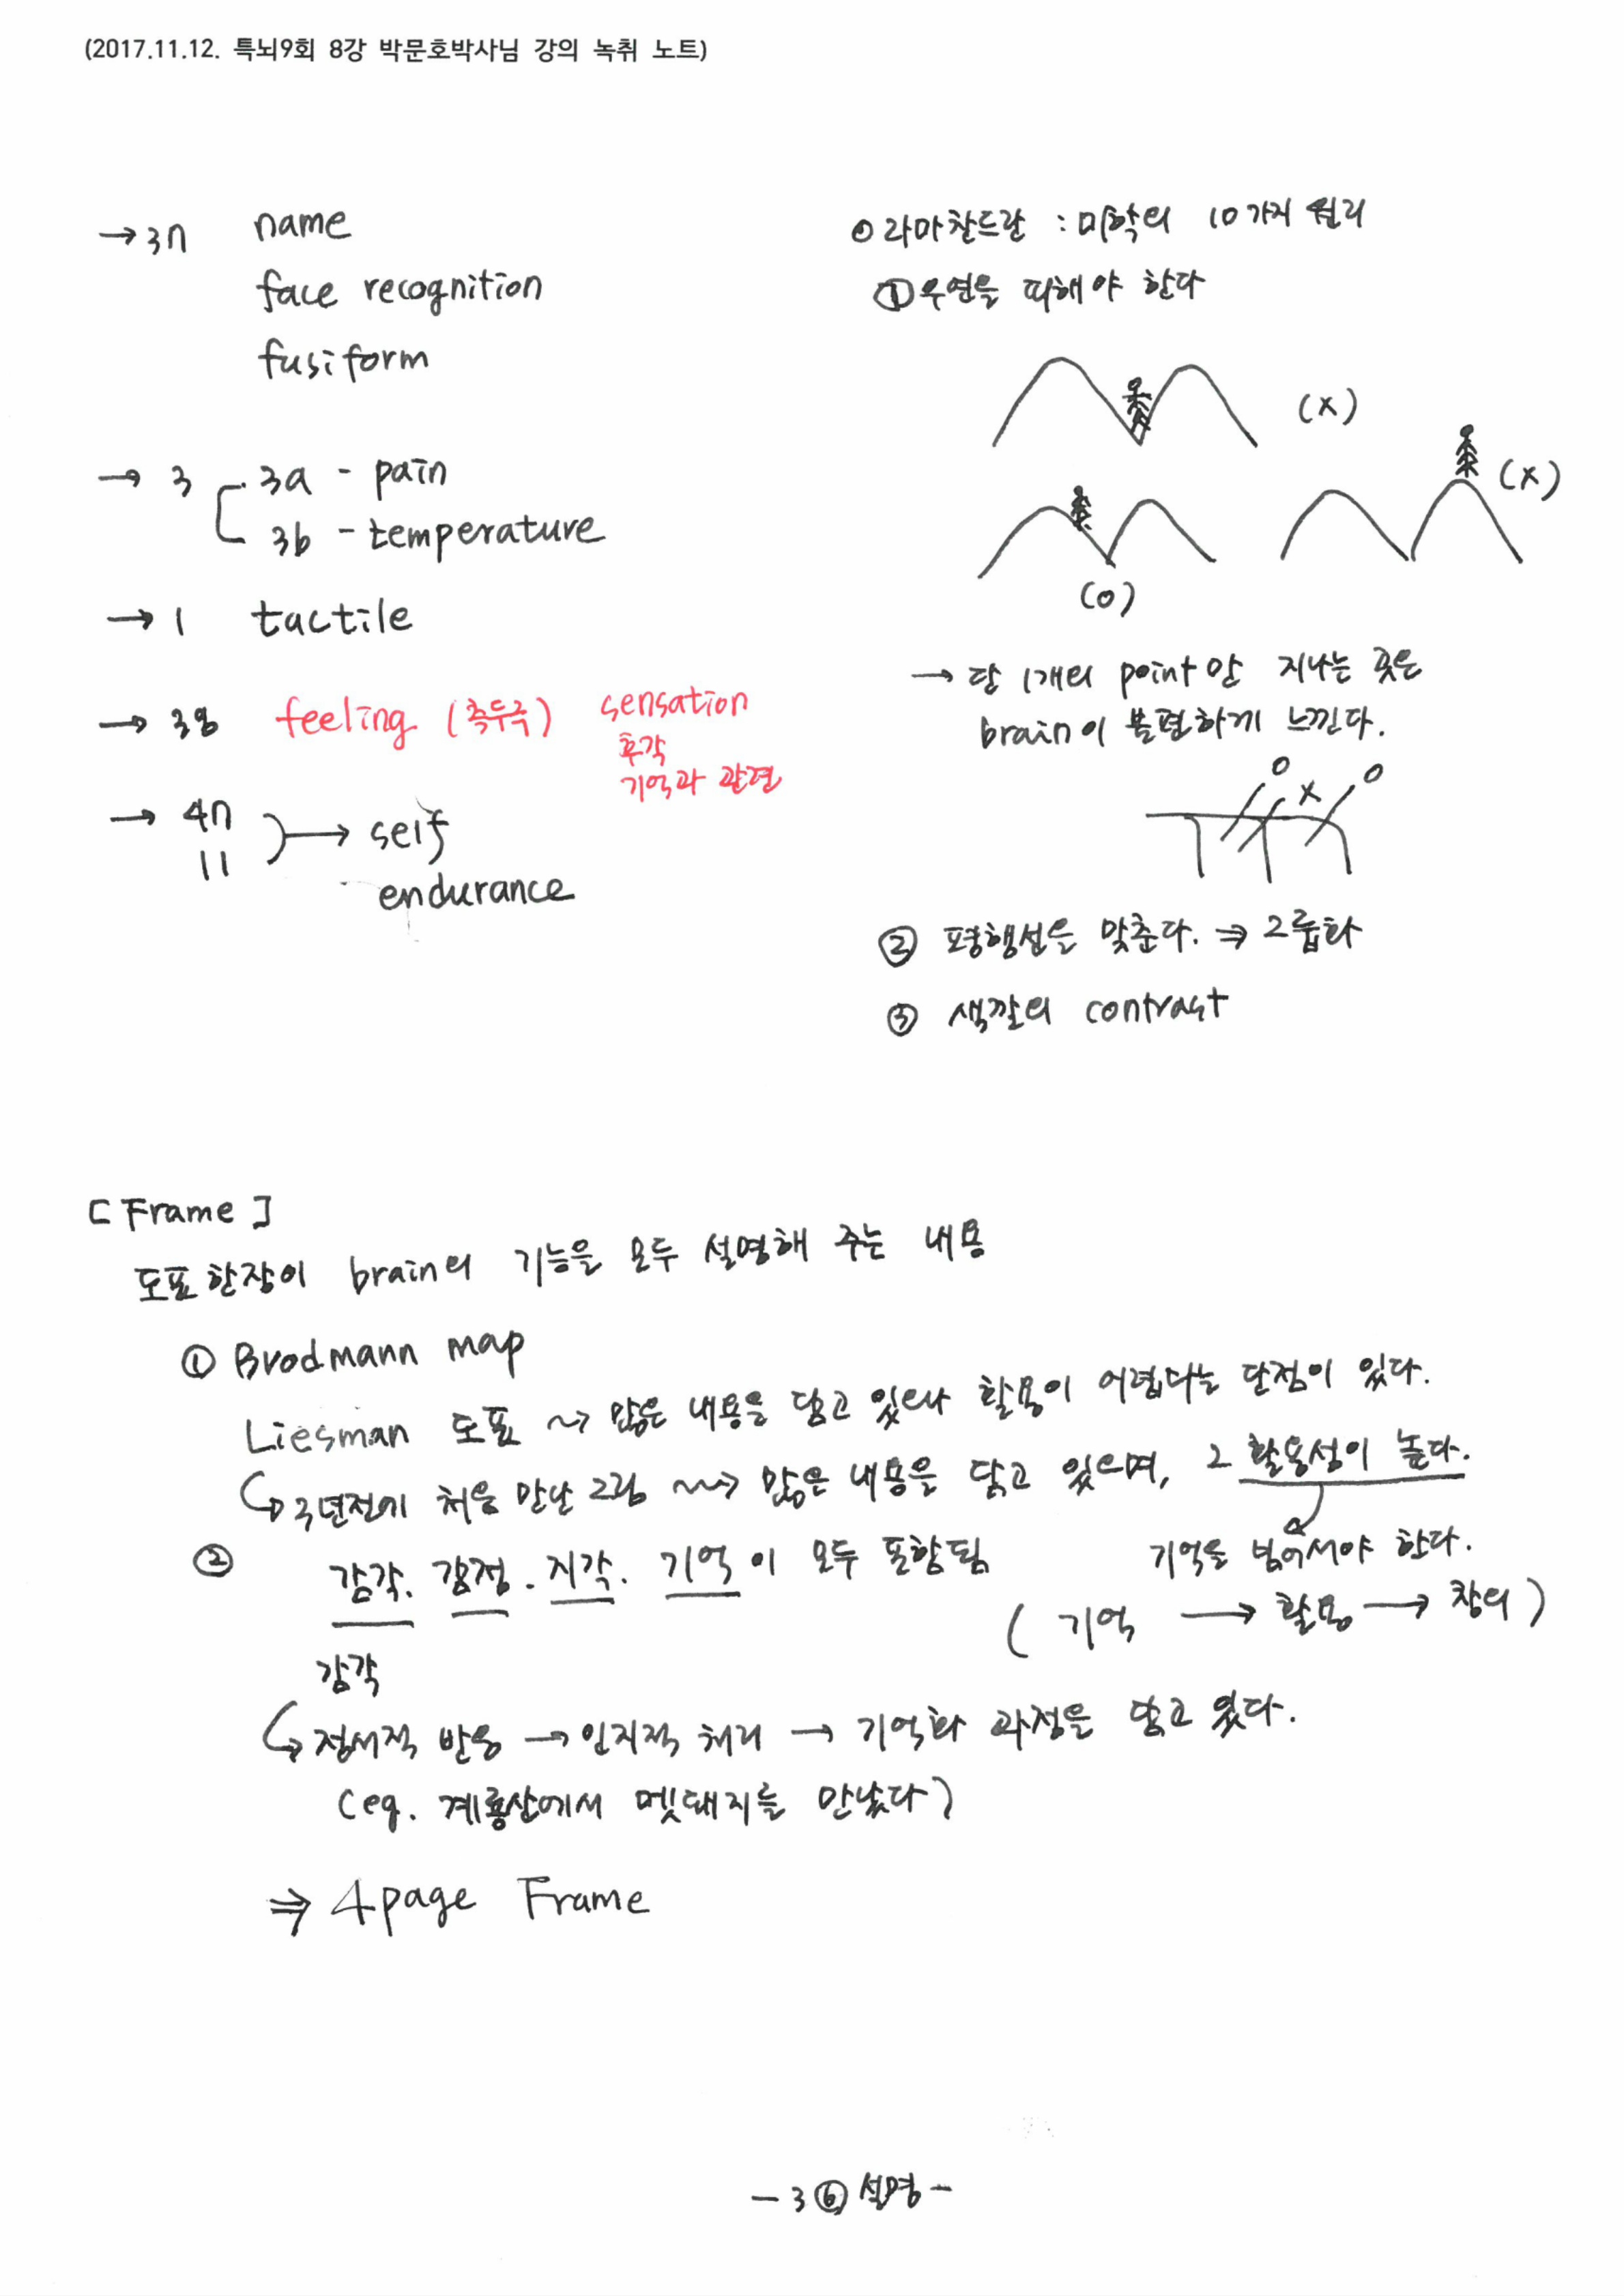 (2017.11.12. 특뇌9회 8강 박문호박사님 강의 녹취 노트)
→ 37 name
face recognition
fusiform
→ 3 3a - pain
3b - temperature
→ 1 tactile
→ 38 feeling (측두극) sensation
후각
기억과 관련
→ 47
11 → self
endurance
라마찬드란 : 미학의 10가지 원리
① 우연을 피해야 한다
(x)
(x)
(o)
→ 단 1개의 point만 지나는 곳은
brain이 불편하게 느낀다.
o x o
② 평행선을 맞춘다. ⇒ 그룹화
③ 색깔의 contrast
[Frame]
도표한장이 brain의 기능을 모두 설명해 주는 내용
① Brodmann map
Liesman 도표 ~> 많은 내용을 담고 있으나 활용이 어렵다는 단점이 있다.
↳ 3년전에 처음 만난 그림 ~> 많은 내용을 담고 있으며, 그 활용성이 높다.
기억을 넘어서야 한다.
② 감각. 감정. 지각. 기억이 모두 포함됨
( 기억 → 활용 → 창의 )
감각
↳ 정서적 반응 → 인지적 처리 → 기억화 과정을 담고 있다.
(eg. 계룡산에서 멧돼지를 만났다)
⇒ 4page Frame
- 3 ⑥ 설명 -